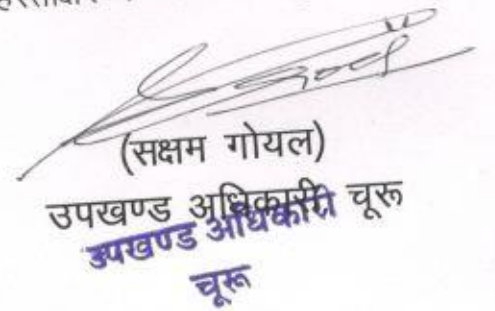 (सक्षम गोयल)
उपखण्ड अधिकारी, चूरू
उपखण्ड अधिकारी
चूरू